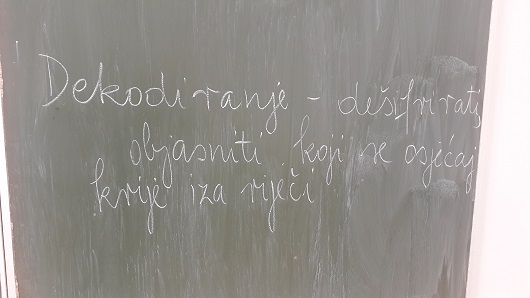 Dekodiranje - dešifrirati,
objasniti koji se osjećaj
krije iza riječi